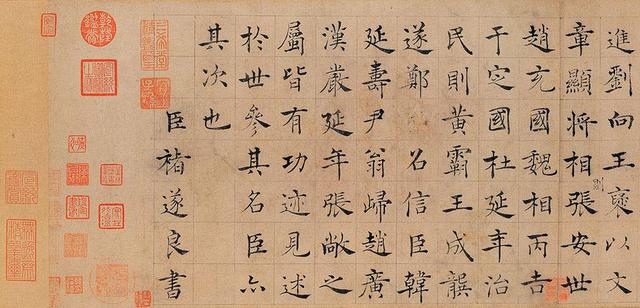 進劉向王褒以文
章顯將相張安世
趙充國魏相丙吉
于定國杜延年治
民則黃霸王成龔
遂鄭 召信臣韓
延壽尹翁歸趙廣
漢嚴延年張敞之
屬皆有功迹見述
於世參其名臣亦
其次也
臣褚遂良書
三希堂精鑑璽
宜子孫
乾隆鑑賞